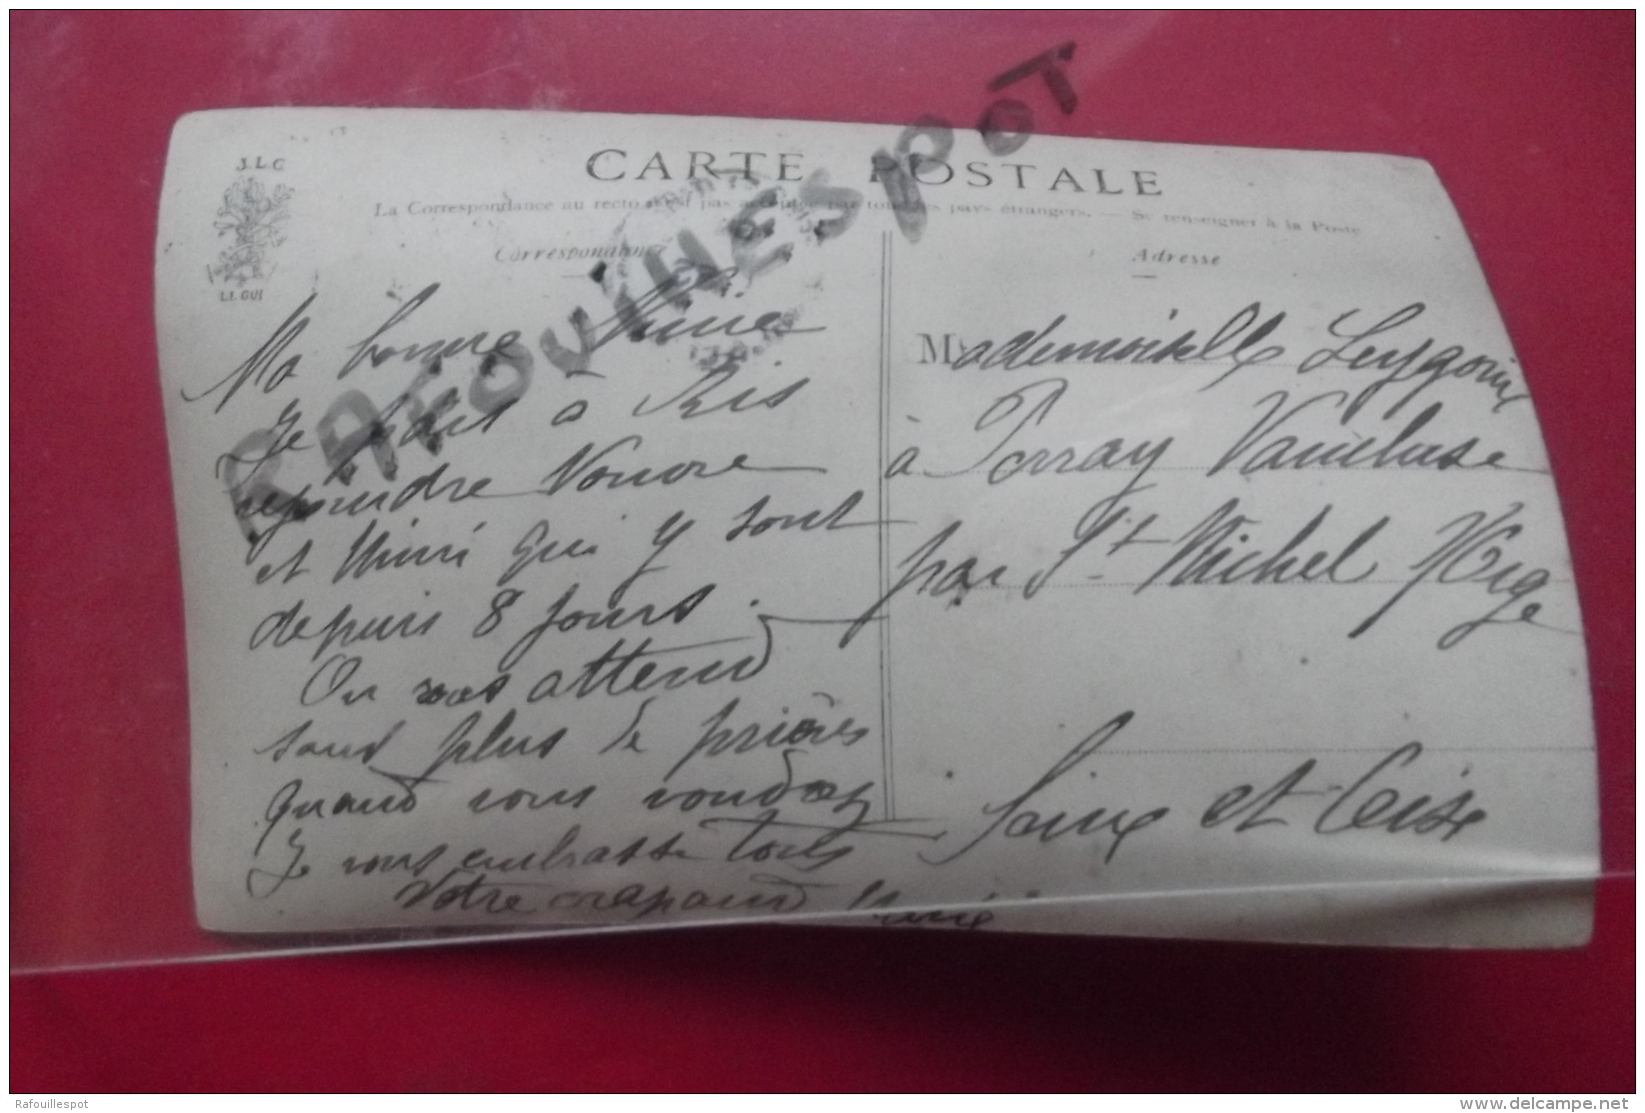 J.L.C
LE GUI
CARTE POSTALE
La Correspondance au recto n'est pas acceptée par tous les pays étrangers. — Se renseigner à la Poste
Correspondance
Adresse
RAFOUILLESPOT
Ma bonne
Je pars à Ris
rejoindre Nonore
et Mimi qui y sont
depuis 8 jours.
On vous attend
sans plus de prières
quand vous voudrez
Je vous embrasse tous
Votre crapaud
Mademoiselle
à Perray Vaucluse
par St Michel s/Orge
Seine et Oise
Rafouillespot
www.delcampe.net